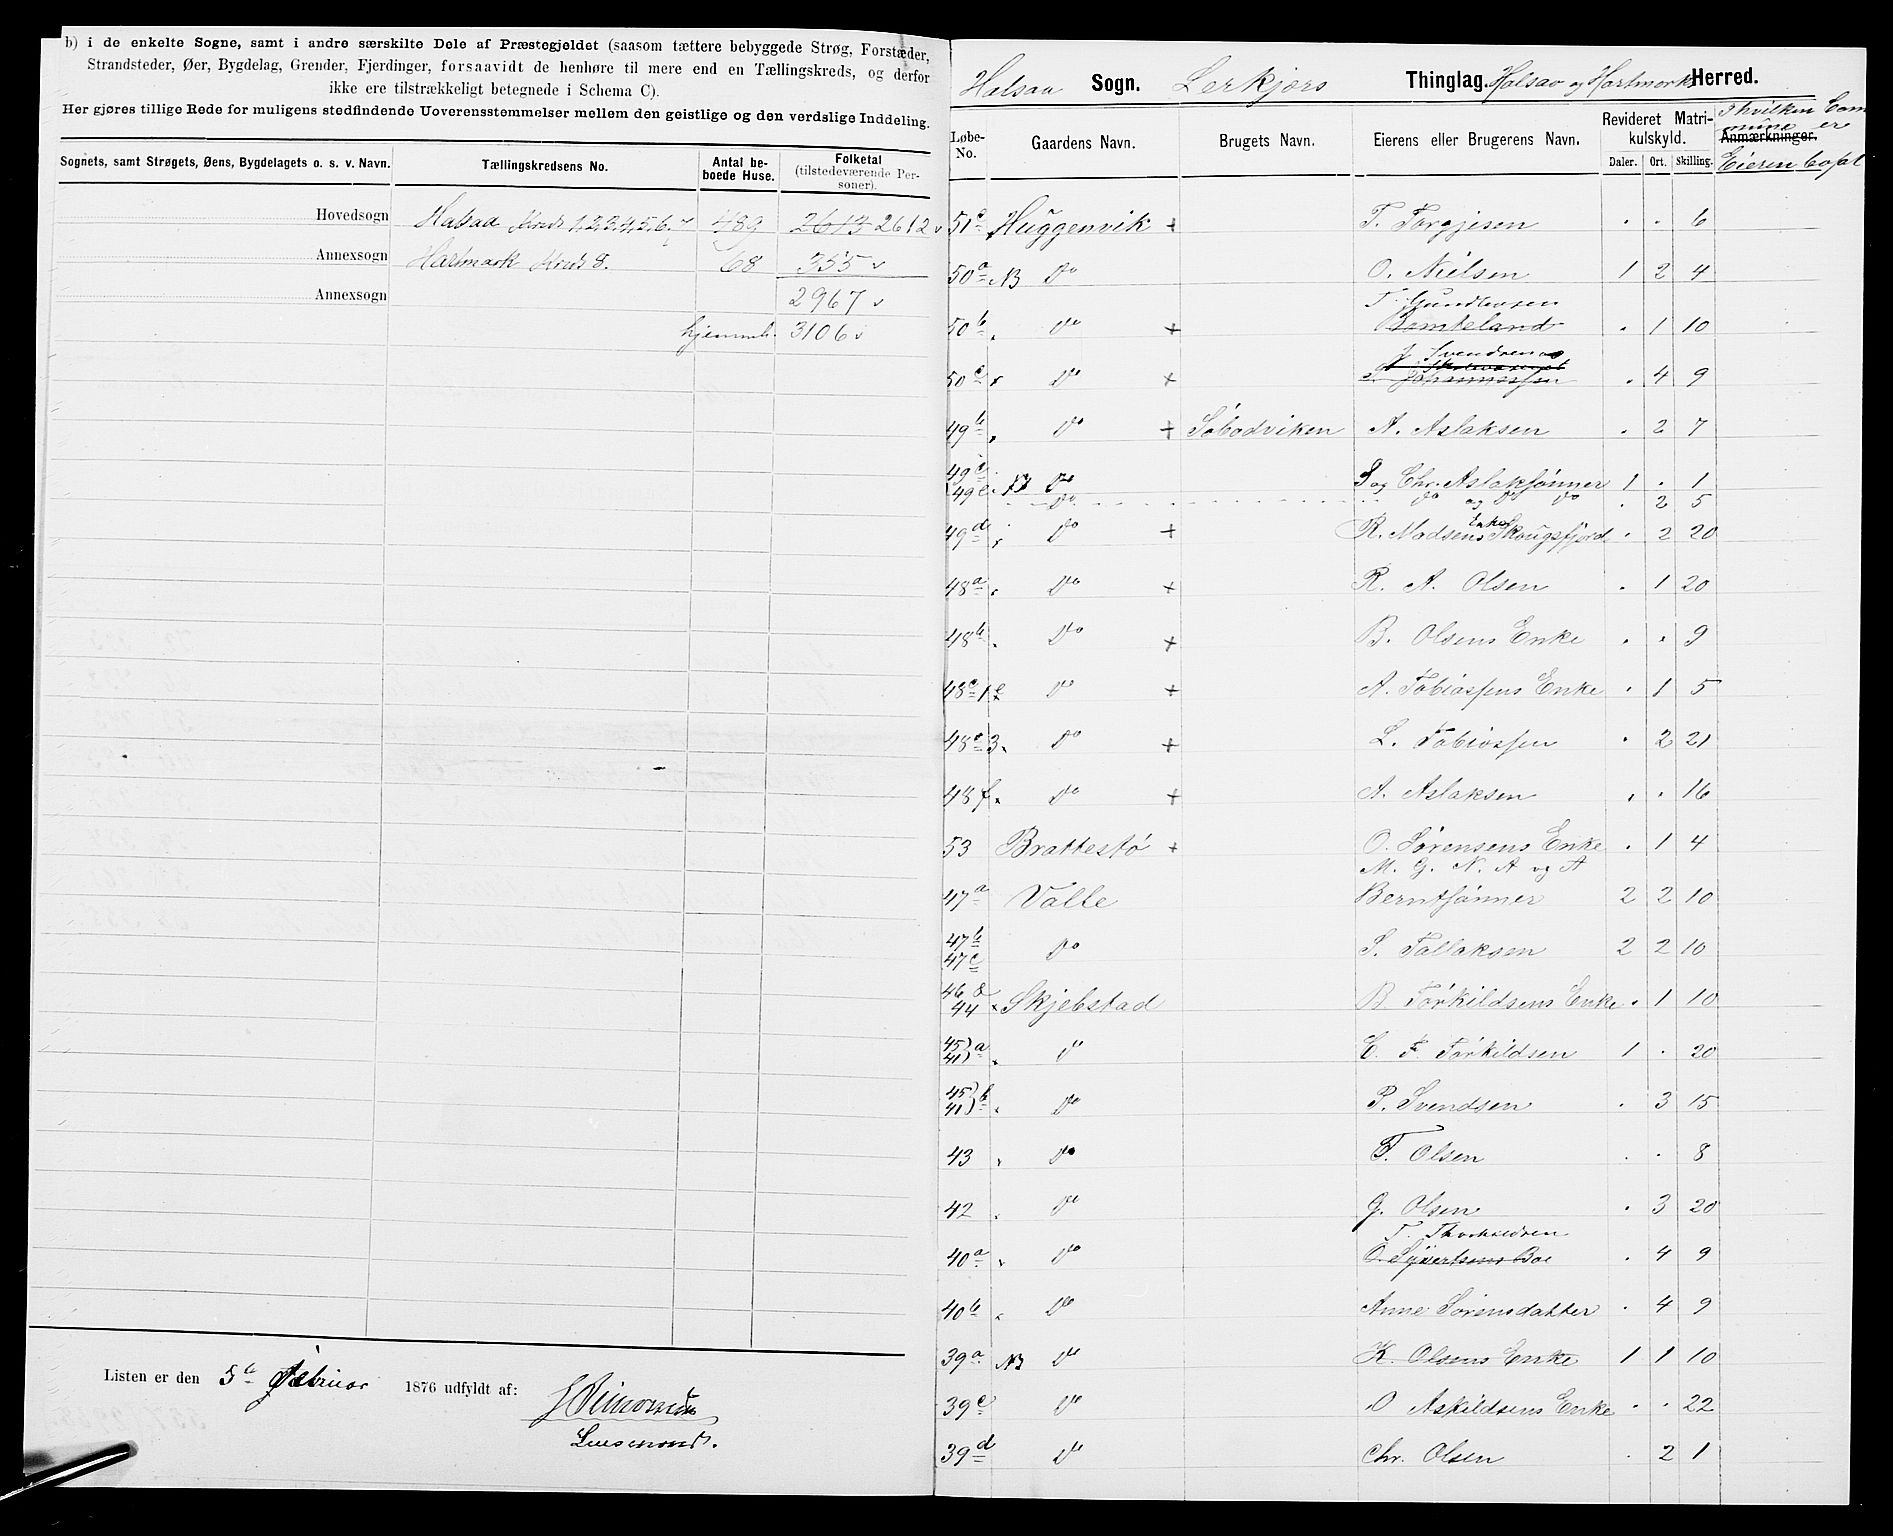 b) i de enkelte Sogne, samt i andre særskilte Dele af Præstegjeldet (saasom tættere bebyggede Strøg, Forstæder,
Strandsteder, Øer, Bygdelag, Grender, Fjerdinger, forsaavidt de henhøre til mere end en Tællingskreds, og derfor
ikke ere tilstrækkeligt betegnede i Schema C).
Her gjøres tillige Rede for muligens stedfindende Uoverensstemmelser mellem den geistlige og den verdslige Inddeling.
Sognets, samt Strøgets, Øens, Bygdelagets o. s. v. Navn. Tællingskredsens No. Antal be-boede Huse. Folketal (tilstedeværende Per-soner).
Hovedsogn Halsaa Kreds 1,2,3,4,5,6,7 489 2613 2612
Annexsogn Hartmark Kreds 8. 68 355
Annexsogn 2967
hjemmh. 3106
Listen er den 5te Februar 1876 udfyldt af:
Lensmand.
Halsaa Sogn. Lerkjærs Thinglag. Halsaa og Hartmarks Herred.
Løbe-No. Gaardens Navn. Brugets Navn. Eierens eller Brugerens Navn. Revideret Matri-kulskyld. Anmærkninger.
I hvilken Com
mune er
Eieren bosat
Daler. Ort. Skilling.
51c Huggenvik + T. Torgjesen . . 6
50a NB Do O. Nielsen 1 2 4
T. Gundersen
50b Do + Benteland . 1 10
J. Svendsen
50c Do + Johannessen . 4 9
49b Do + Søbodviken A. Aslaksen . 2 7
49c
49e Do S og Chr. Aslaksønner 1 . 1
Do do og do do . 2 5
49d Do + R. Madsens Enke Skougsfjord . 2 20
48a Do + R. A. Olsen . 1 20
48b Do + B. Olsens Enke . . 9
48c 1 Do + A. Tobiassens Enke . 1 5
48c 3 Do + L. Tobiassen . 2 21
48f Do + A. Aslaksen . . 16
53 Brattestø + O. Sørensens Enke . 1 4
M. G. N. A og A
47a Valle Berntsønner 2 2 10
47b
47c Do S. Tallaksen 2 2 10
46 &
44 Skjebstad B Torkildsens Enke . 1 10
45) a
41) Do E. T. Torkildsen 1 . 20
45) b
41) Do P. Svendsen . 3 15
43 Do T. Olsen . . 8
42 Do G. Olsen . 3 20
T. Thorkildsen
40a Do O. Syvertsens Boe . 4 9
40b Do Anne Sørensdatter . 4 9
39a NB Do K. Olsens Enke 1 1 10
39c Do O Askildsens Enke . . 22
39d Do Chr. Olsen . 2 1